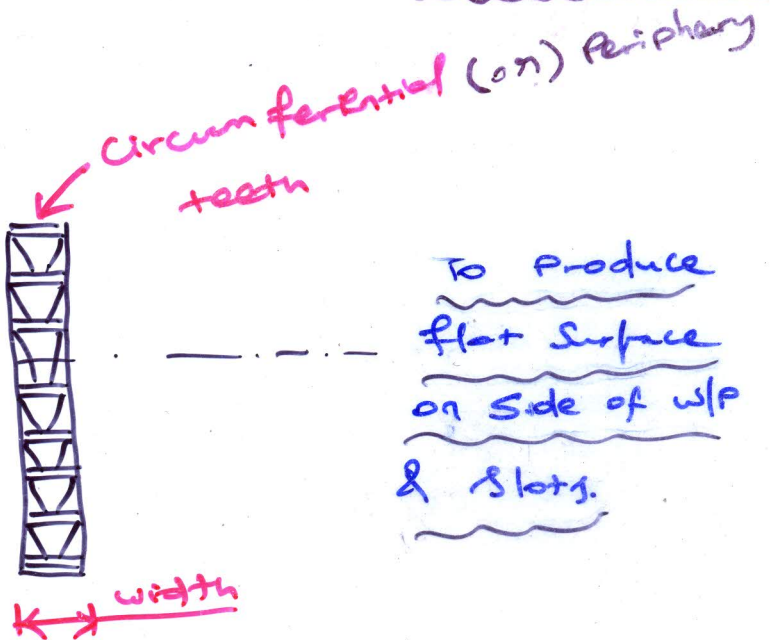 Circumferential (or) Periphery
teeth
To Produce
flat Surface
on Side of w/p
& Slots.
width